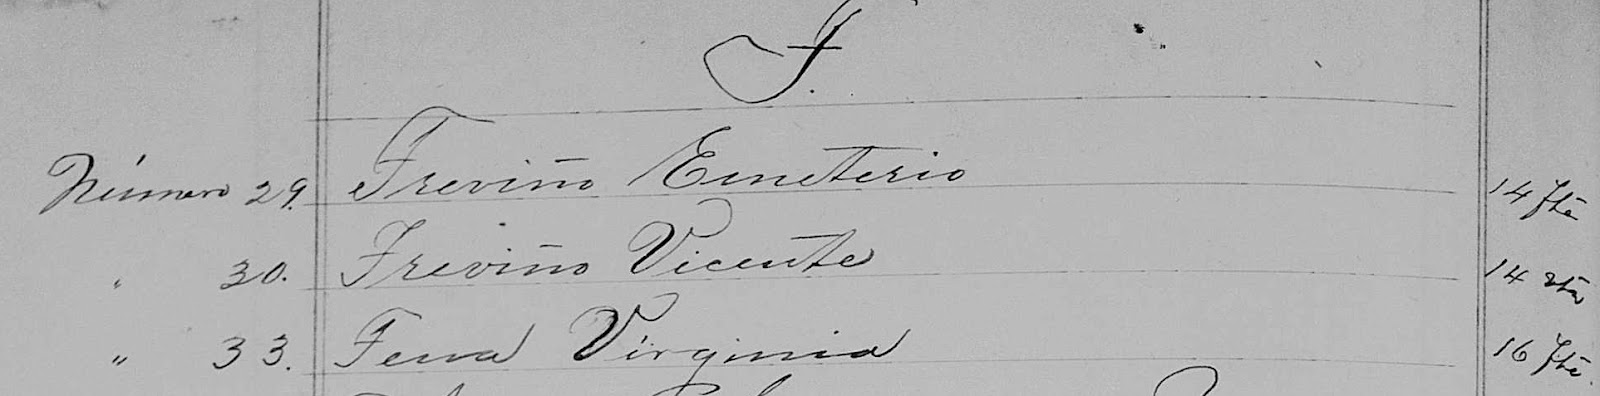 T.
Número 29. Treviño Emeterio 14 fte
" 30. Treviño Vicente 14 vta
" 33. Virginia 16 fte